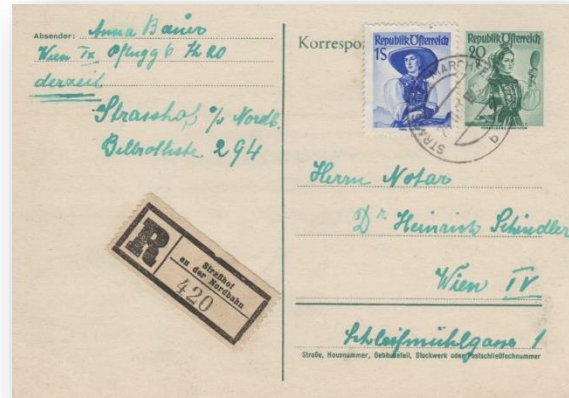 Absender: Anna Bauer
Wien IX
derzeit
Strasshof a/ Nordb.
294
R
Straßhof
an der Nordbahn
420
Korrespo
Republik Österreich
1S
Republik Österreich
20
Herrn Notar
Dr Heinrich Schindler
Wien IV
Schleifmühlgasse 1
Straße, Hausnummer, Gebäudeteil, Stockwerk oder Postschließfachnummer